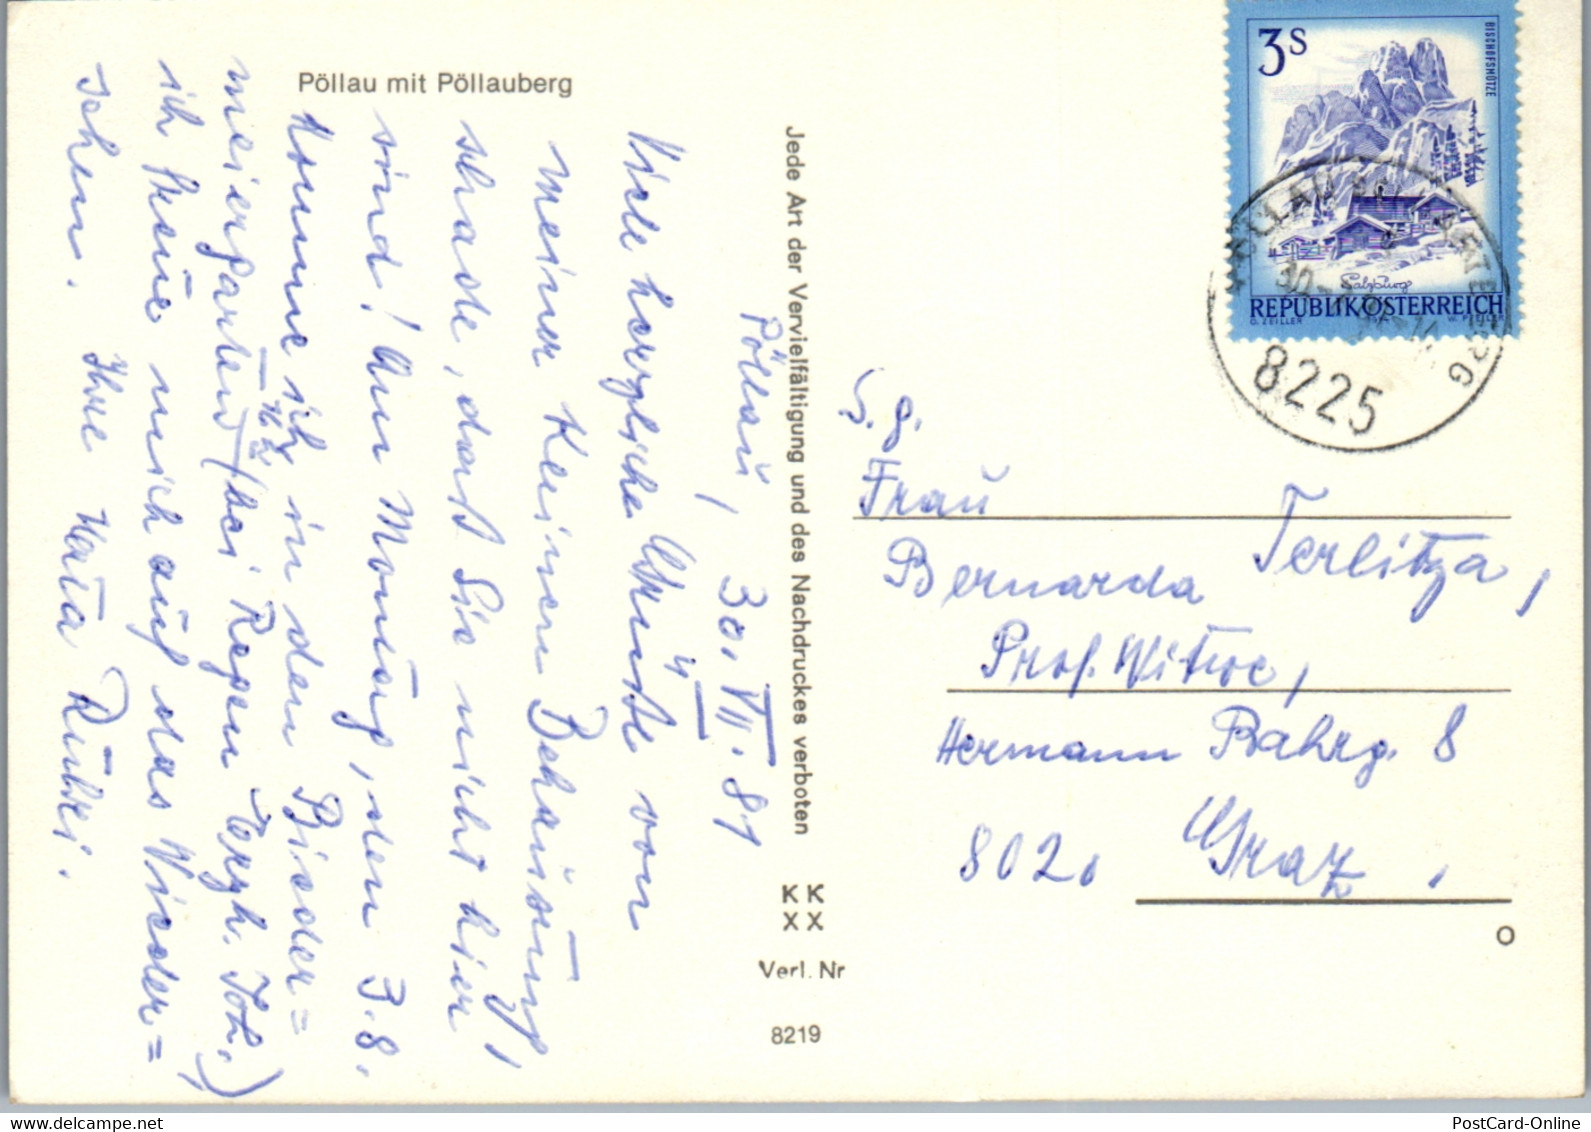 Pöllau mit Pöllauberg
Pöllau, 30. VII. 81
Viele herzliche Grüße von
meiner kleinen Behausung,
schade, daß Sie nicht hier
sind! Am Montag, den 3.8.
komme ich in den Bieder=
meiergarten (bei Regen Erzh. Joh.)
16 h
ich freue mich auf das Wieder=
sehen. Ihre
Jede Art der Vervielfältigung und des Nachdruckes verboten
KK
XX
Verl. Nr
8219
3S
BISCHOFSMÜTZE
Salzburg
REPUBLIK ÖSTERREICH
O. ZEILLER
W. PFEILER
8225
S. g.
Frau
Bernarda Terlitza,
Prof. Witwe,
Hermann Bahrg. 8
8020 Graz.
O
PostCard-Online